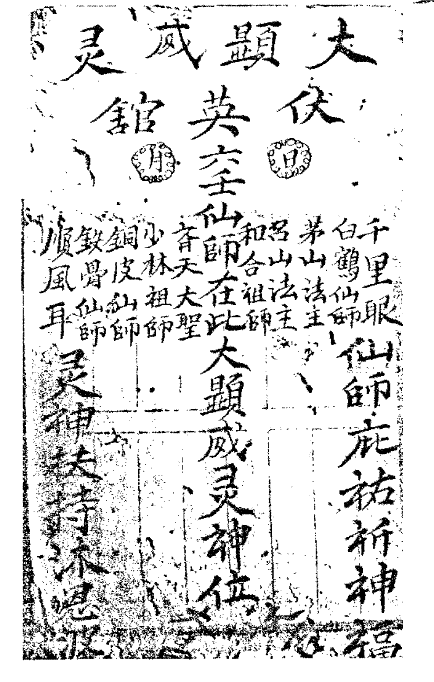 大顯威灵
伏英舘
日
月
千里眼
白鶴仙師
茅山法主
呂山法主
和合祖師
六壬仙師在此大顯威灵神位
斉天大聖
少林祖師
銅皮仙師
鉄骨仙師
順風耳
仙師庇祐祈神福
灵神扶持沐恩波